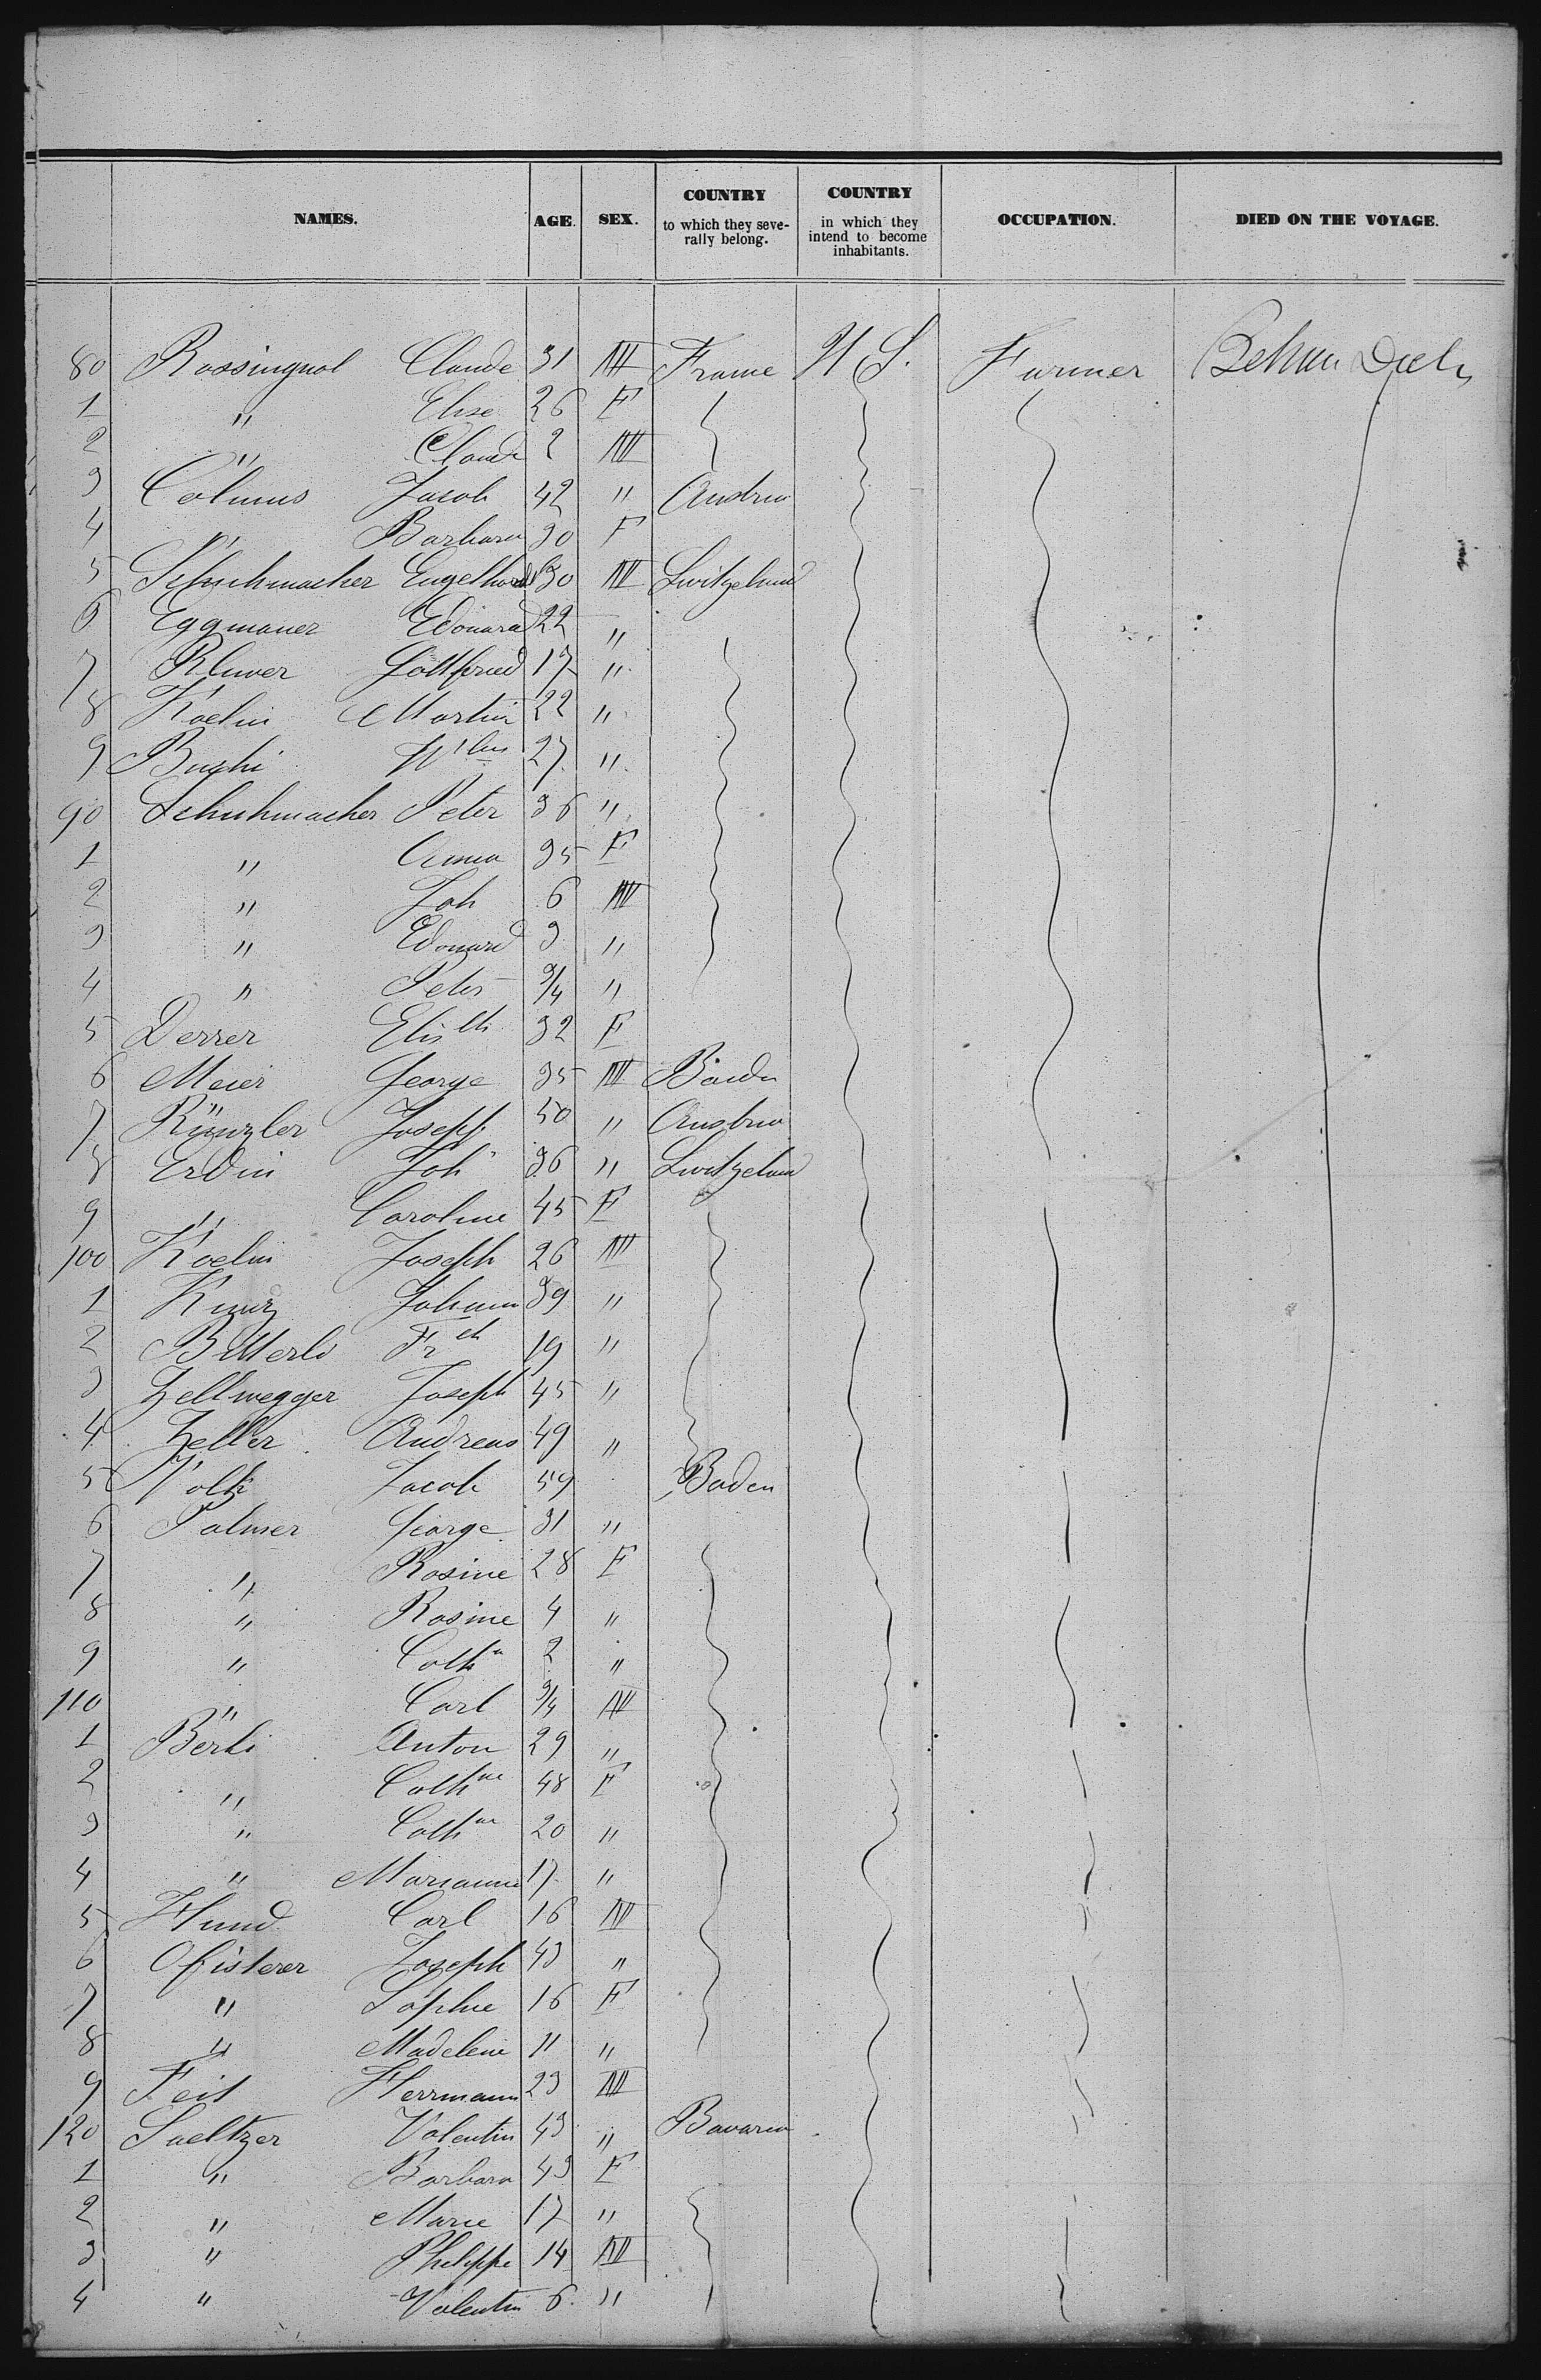 NAMES. AGE. SEX. COUNTRY to which they seve-rally belong. COUNTRY in which they intend to become inhabitants. OCCUPATION. DIED ON THE VOYAGE.
80 Rossingnol Claude 31 M France U S. Farmer
1 " Elise 26 F
2 " Claude 2 M
3 Colmus Jacob 42 " Austria
4 " Barbara 30 F
5 Schuhmacher Engelhard 30 M Switzeland
6 Eggmaner Edouard 22 "
7 Gottfried 17 "
8 Koelin Martin 22 "
9 27 "
90 Schuhmacher Peter 36 "
1 " Anna 35 F
2 " Joh 6 M
3 " Edouard 3 "
4 " Peter 3/4 "
5 Derrer Elisth 32 F
6 Meier George 35 M Baden
7 Künzler Joseph 50 " Austria
8 Erdin Joh 36 " Switzeland
9 " Caroline 45 F
100 Koelin Joseph 26 M
1 Kunz Johann 39 "
2 Bitterli Frch 19 "
3 Zellwegger Joseph 45 "
4 Zeller Andreas 49 "
5 Volk Jacob 59 Baden
6 Palmer George 31 "
7 " Rosine 28 F
8 " Rosine 4 "
9 " Cath 2 "
110 " Carl 3/4 M
1 Berli Anton 29 "
2 " Cathne 48 F
3 " Cathne 20 "
4 " Marianne 17 "
5 Hund Carl 16 M
6 Pfisterer Joseph 43 "
7 " Sophie 16 F
8 " Madelene 11 "
9 Feit Herrmann 23 M
120 Saeltzer Valentin 43 " Bavaria
1 " Barbara 43 F
2 " Marie 17 "
3 " Philippe 14 M
4 " Valentin 6 "